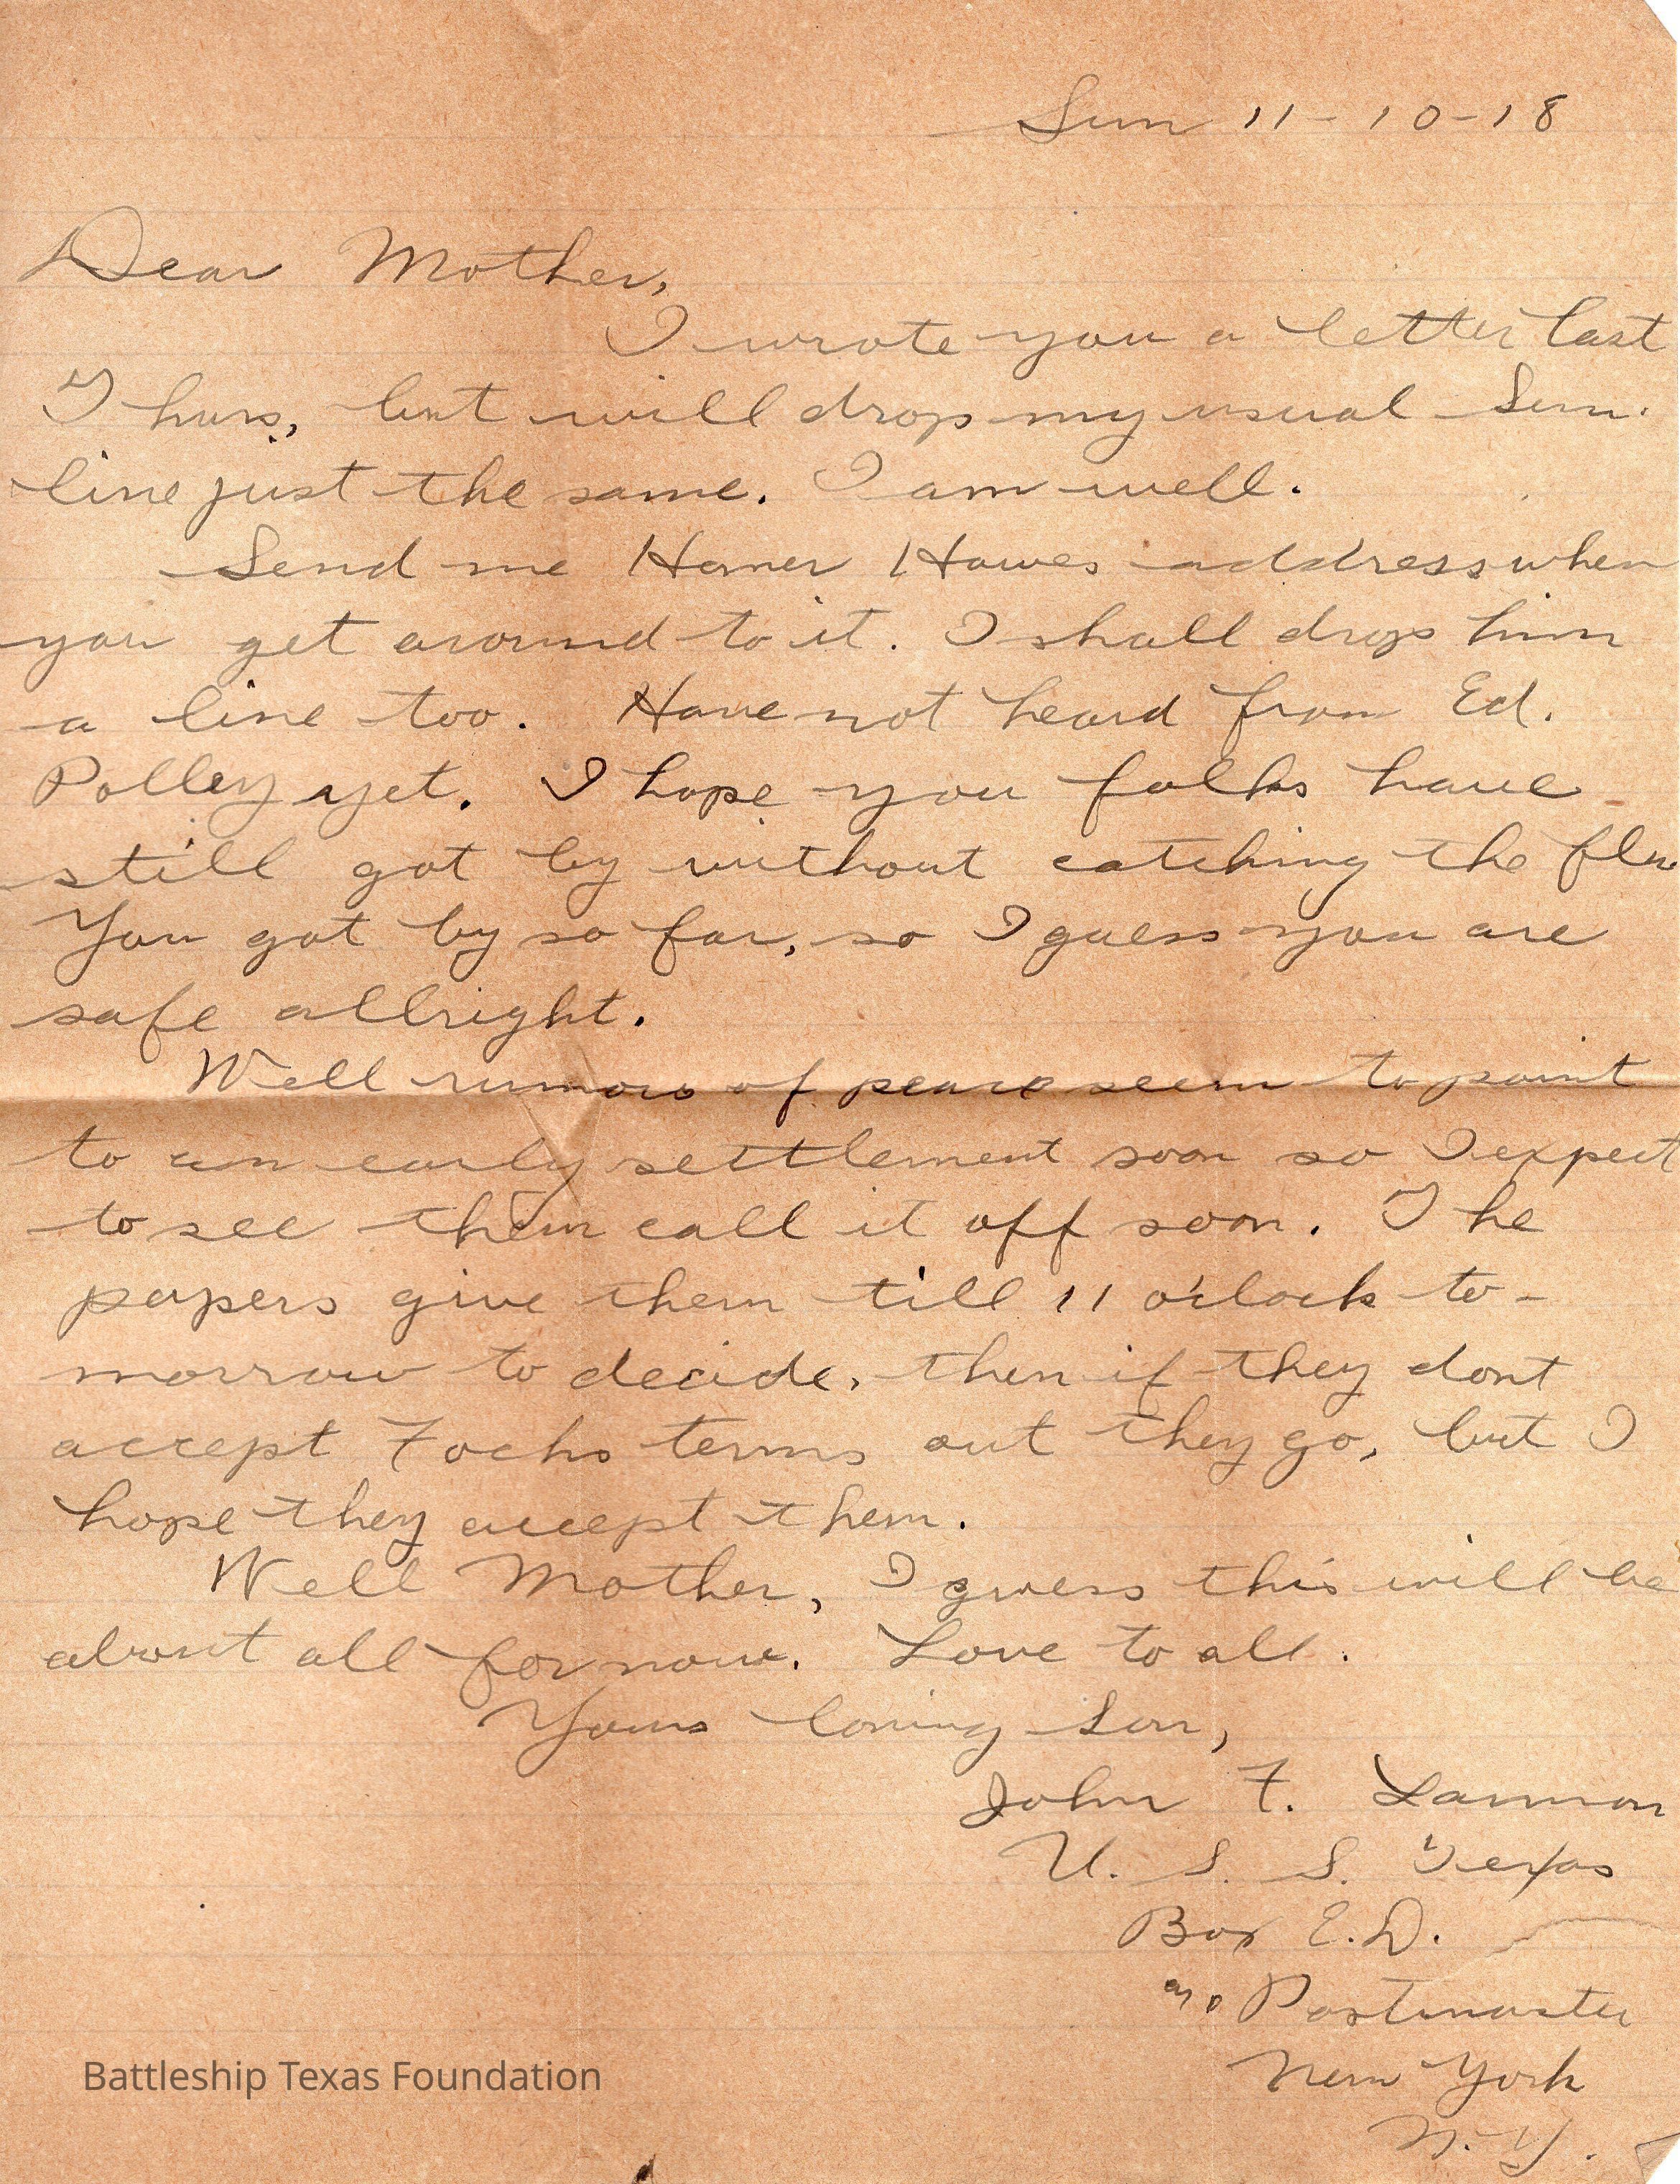 Sun 11-10-18
Dear Mother,
I wrote you a letter last
Thurs, but will drop my usual Sun.
line just the same. I am well.
Send me Homer Howes address when
you get around to it. I shall drop him
a line too. Have not heard from Ed.
Polley yet. I hope you folks have
still got by without catching the flu
You got by so far, so I guess you are
safe allright.
Well rumors of peace seem to point
to an early settlement soon so I expect
to see them call it off soon. The
papers give them till 11 o'clock to-
morrow to decide, then if they dont
accept Fochs terms out they go, but I
hope they accept them.
Well Mother, I guess this will be
about all for now. Love to all.
Yours loving Son,
John F. Lannon
U. S. S. Texas
Box E.D.
c/o Postmaster
New York
N.Y.
Battleship Texas Foundation